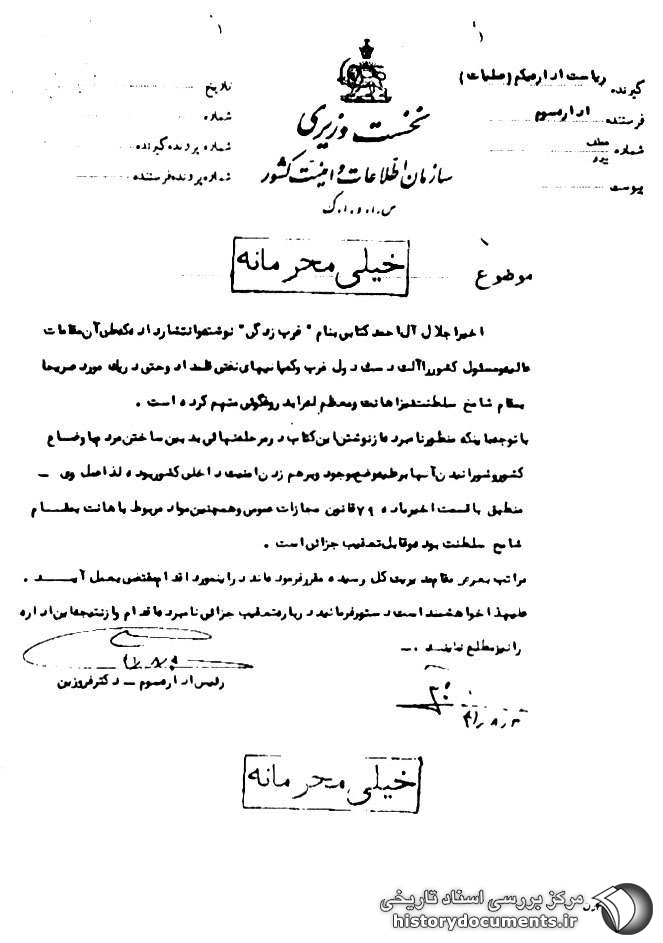 گیرنده ریاست اداره یکم (عملیات)
فرستنده اداره سوم
شماره عطف پیرو
پیوست
نخست وزیری
سازمان اطلاعات و امنیت کشور
س.ا.و.ا.ک
تاریخ
شماره
شماره پرونده گیرنده
شماره پرونده فرستنده
موضوع
خیلی محرمانه
اخیرا جلال آل احمد کتابی بنام " غرب زدگی " نوشته و انتشار داده که طی آن مقامات
عالیه و مسئول کشور را آلت دست دول غرب و کمپانیهای نفتی قلمداد و حتی در یک مورد صریحا
بمقام شامخ سلطنت نیز اهانت و معظم له را به دروغگوئی متهم کرده است .
با توجه باینکه منظور نامبرده از نوشتن این کتاب در مرحله نهائی بدبین ساختن مردم باوضاع
کشور و شورانیدن آنها بر علیه وضع موجود و برهم زدن امنیت داخلی کشور بوده لذا عمل وی -
منطبق با قسمت اخیر ماده ۷۹ قانون مجازات عمومی و همچنین مواد مربوط باهانت بمقام
شامخ سلطنت بوده و قابل تعقیب جزائی است .
مراتب بعرض مقام مدیریت کل رسیده مقرر فرموده‌اند در اینمورد اقدام مقتضی بعمل آید .
علیهذا خواهشمند است دستور فرمائید درباره تعقیب جزائی نامبرده اقدام و از نتیجه این اداره
را نیز مطلع نمایند . -
رئیس اداره سوم - دکتر فروزین
خیلی محرمانه
مرکز بررسی اسناد تاریخی
historydocuments.ir